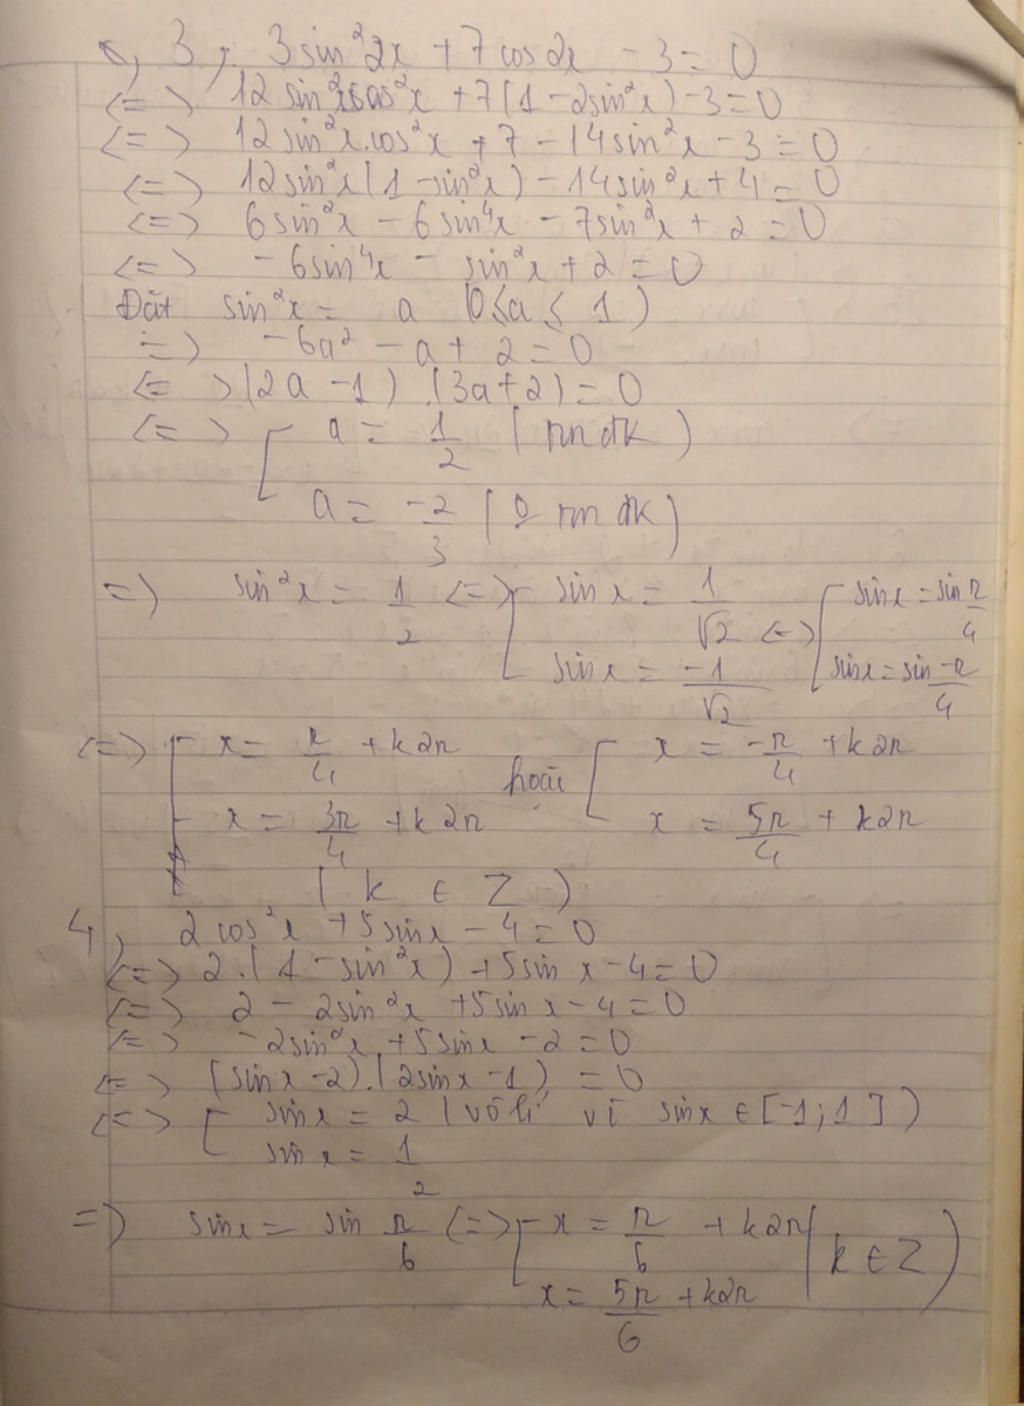 3, 3sin²2x + 7cos2x - 3 = 0
<=> 12sin²x.cos²x + 7(1 - 2sin²x) - 3 = 0
<=> 12sin²x.cos²x + 7 - 14sin²x - 3 = 0
<=> 12sin²x(1 - sin²x) - 14sin²x + 4 = 0
<=> 6sin²x - 6sin⁴x - 7sin²x + 2 = 0
<=> -6sin⁴x - sin²x + 2 = 0
Đặt sin²x = a (0 ≤ a ≤ 1)
=> -6a² - a + 2 = 0
<=> (2a - 1).(3a + 2) = 0
<=> [ a = 1/2 (tmđk)
a = -2/3 (0 tmđk)
=> sin²x = 1/2 <=> [ sin x = 1/√2 <=> [ sin x = sin π/4
sin x = -1/√2 sin x = sin -π/4
<=> [ x = π/4 + k2π hoặc [ x = -π/4 + k2π
x = 3π/4 + k2π x = 5π/4 + k2π
(k ∈ Z)
4, 2cos²x + 5sin x - 4 = 0
<=> 2.(1 - sin²x) + 5sin x - 4 = 0
<=> 2 - 2sin²x + 5sin x - 4 = 0
<=> -2sin²x + 5sin x - 2 = 0
<=> (sin x - 2).(2sin x - 1) = 0
<=> [ sin x = 2 (vô lí vì sin x ∈ [-1;1])
sin x = 1/2
=> sin x = sin π/6 <=> [ x = π/6 + k2π (k ∈ Z)
x = 5π/6 + k2π